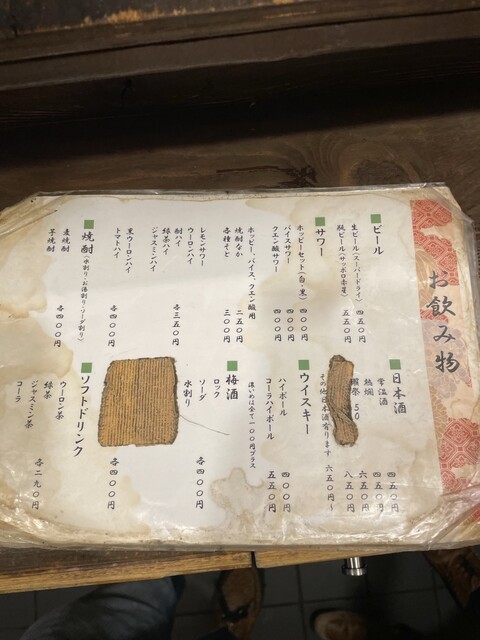 お飲み物
ビール
生ビール(スーパードライ) 五五〇円
瓶ビール(サッポロ赤星) 五五〇円
サワー
ホッピーセット(白・黒) 五〇〇円
バイスサワー 四〇〇円
クエン酸サワー 四〇〇円
ホッピー、バイス、クエン酸用
焼酎なか 二五〇円
各種そと 三〇〇円
レモンサワー
ウーロンハイ
酎ハイ
緑茶ハイ
ジャスミンハイ
各三五〇円
黒ウーロンハイ
トマトハイ
各四〇〇円
焼酎(水割り・お湯割り・ソーダ割り)
麦焼酎
芋焼酎
各四〇〇円
日本酒
常温酒 四五〇円
熱燗 四五〇円
獺祭 50 八五〇円
その他日本酒有ります 六五〇円~
ウイスキー
ハイボール 四〇〇円
コーラハイボール 五五〇円
濃いめは全て一〇〇円プラス
梅酒
ロック
ソーダ
水割り
各四〇〇円
各四〇〇円
ソフトドリンク
ウーロン茶
緑茶
ジャスミン茶
コーラ
各二九〇円